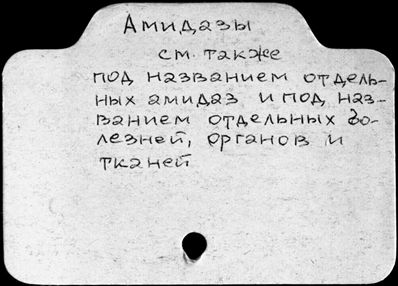 Амидазы
см. также
под названием отдель-
ных амидаз и под наз-
ванием отдельных бо-
лезней, органов и
тканей